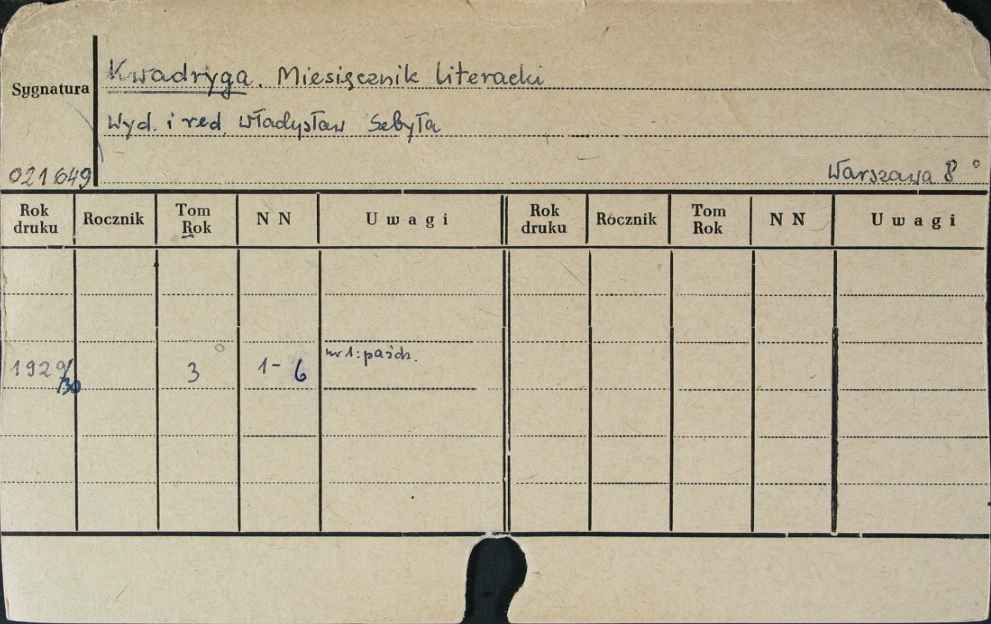 Kwadryga. Miesięcznik literacki
Sygnatura
Wyd. i red. Władysław Sebyła
021649
Warszawa 8°
Rok druku Rocznik Tom Rok N N Uwagi Rok druku Rocznik Tom Rok N N Uwagi
1929/30 3 1-6 nr 1: paźdz.